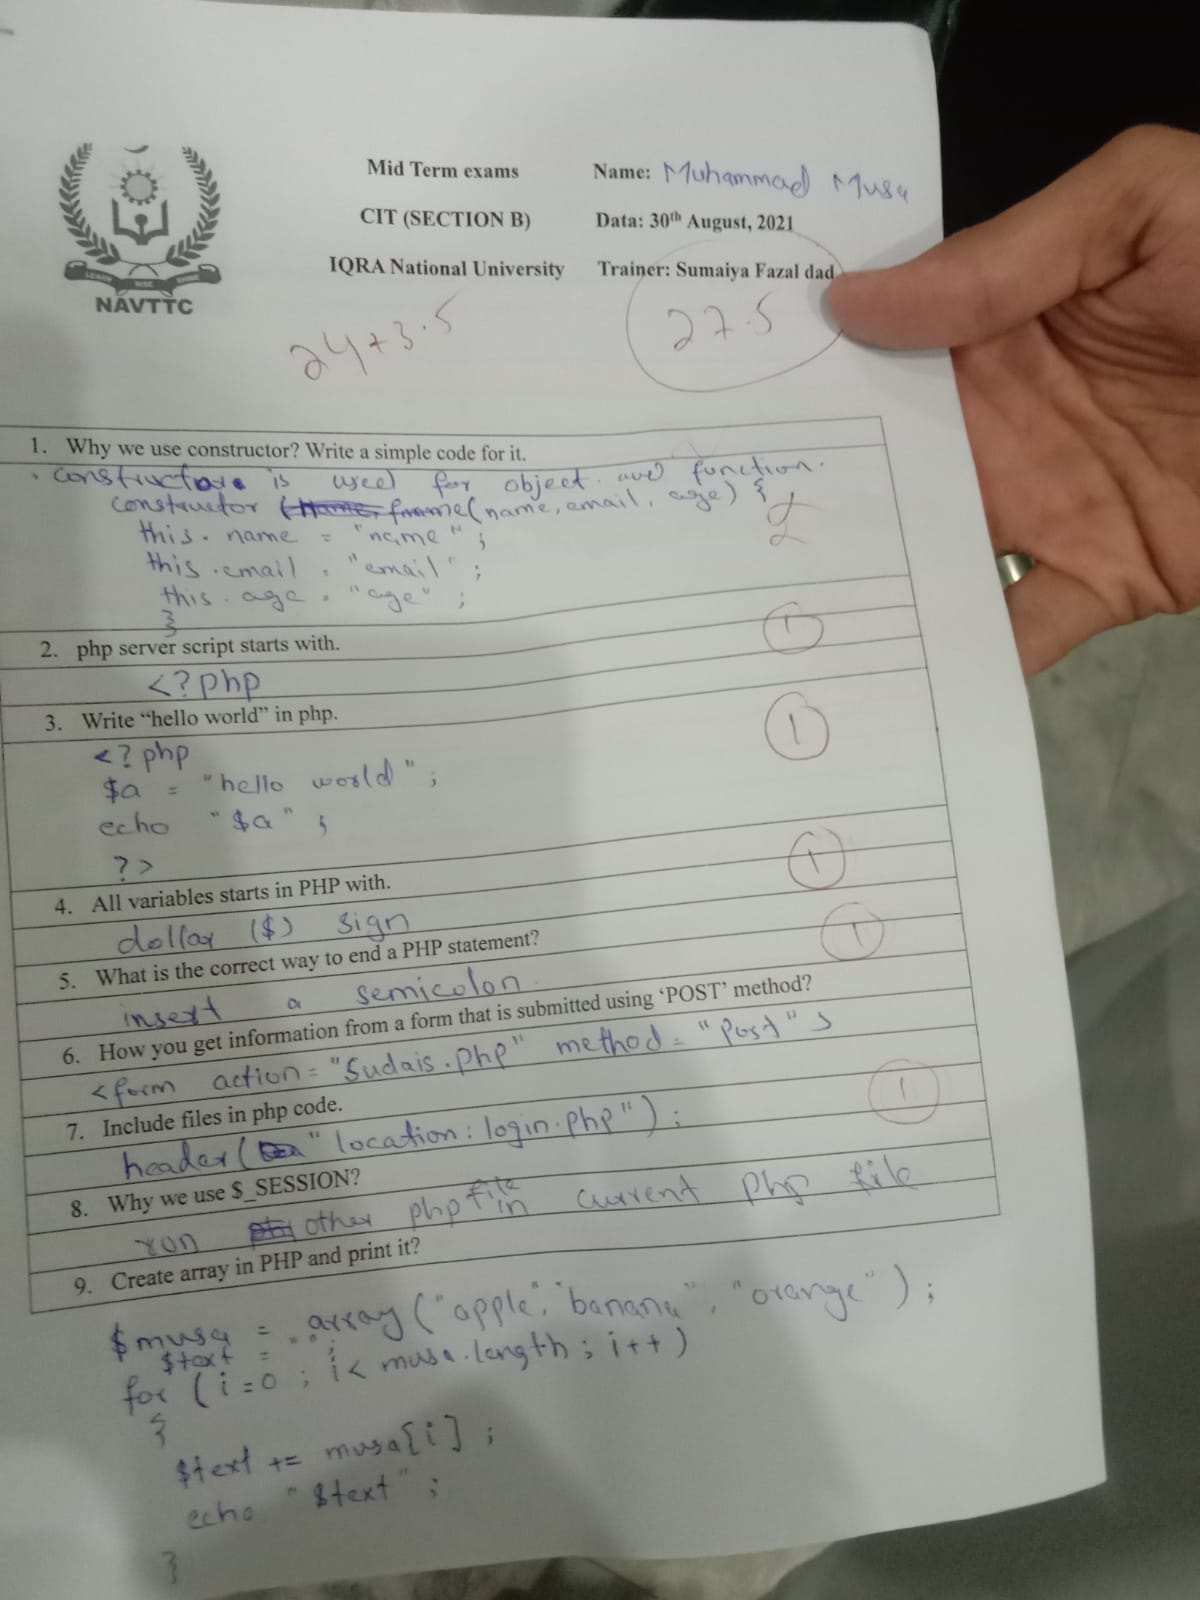 Mid Term exams
Name: Muhammad Musa
CIT (SECTION B)
Data: 30th August, 2021
IQRA National University
Trainer: Sumaiya Fazal dad
NAVTTC
24+3.5
27.5
1. Why we use constructor? Write a simple code for it.
constructor is used for object and function.
constructor fname(name, email, age) {
this.name = "name";
this.email = "email";
this.age = "age";
}
2
2. php server script starts with.
1
<?php
3. Write “hello world” in php.
1
<?php
$a = "hello world";
echo "$a";
?>
4. All variables starts in PHP with.
1
dollar ($) sign
5. What is the correct way to end a PHP statement?
1
insert a semicolon.
6. How you get information from a form that is submitted using ‘POST’ method?
<form action="Sudais.php" method="Post">
7. Include files in php code.
1
header("location:login.php");
8. Why we use $_SESSION?
run other php file in current php file
9. Create array in PHP and print it?
$musa = array("apple", "banana", "orange");
$text = " ";
for (i=0; i< musa.length; i++)
{
$text += musa[i];
echo "$text";
}